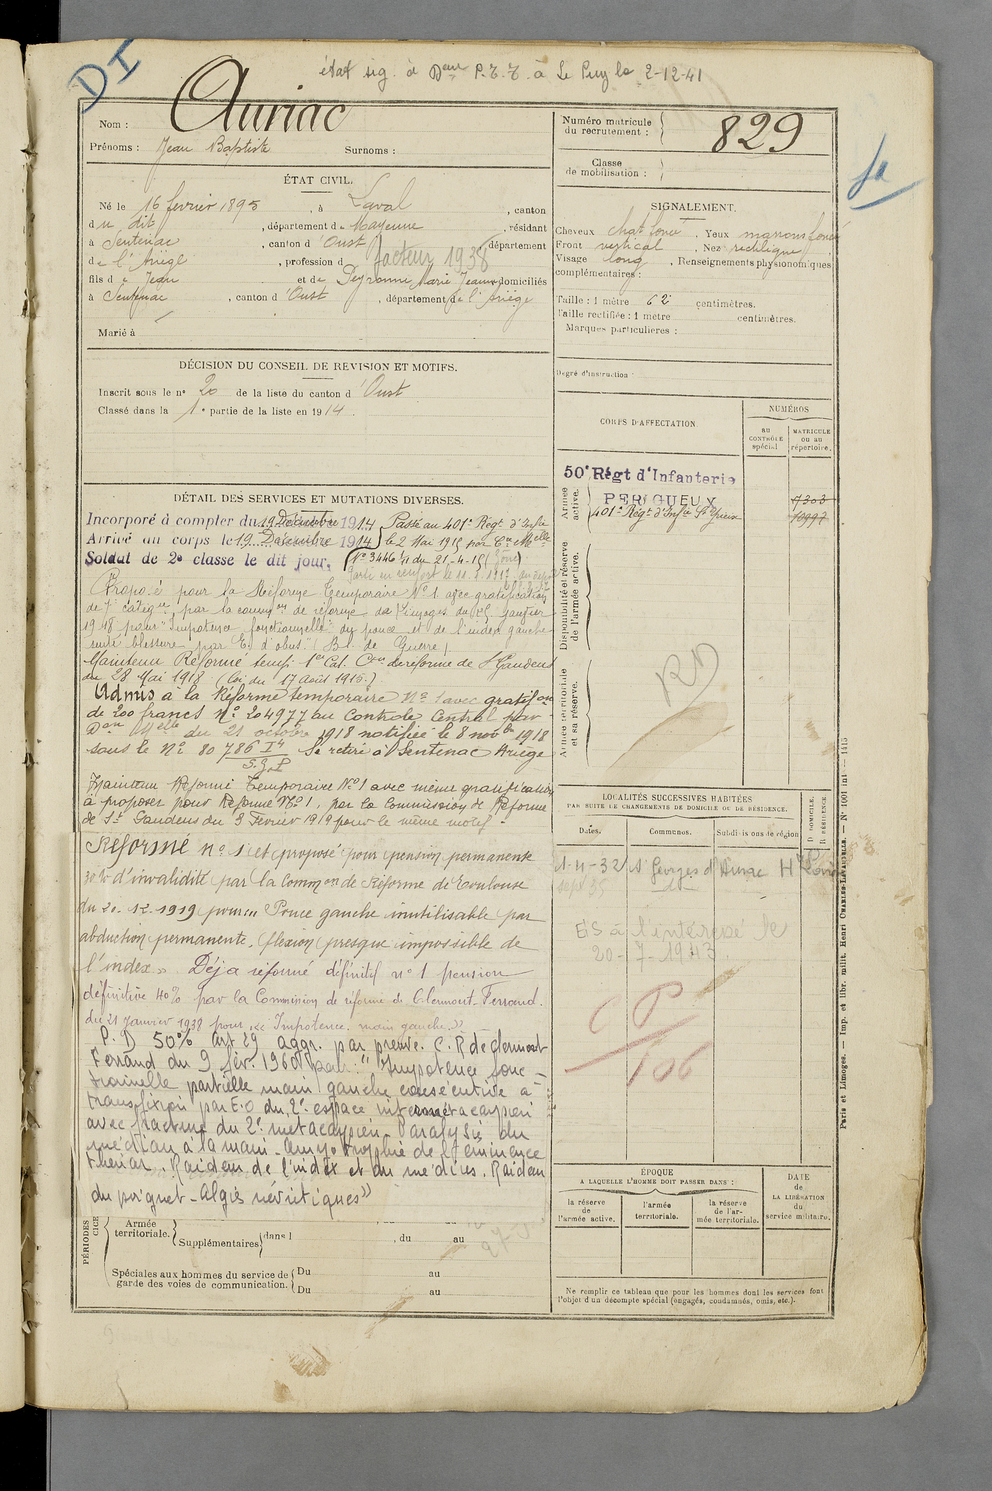 DI
état sig. à Dem P.T.T. à Le Puy le 2-12-41
Nom : Auriac
Prénoms : Jean Baptiste Surnoms :
Numéro matricule du recrutement : 829
Classe de mobilisation :
ÉTAT CIVIL.
Né le 16 février 1895, à Laval, canton
du dit, département de Mayenne, résidant
à Sentenac, canton d'Oust, département
de l'Ariège, profession de facteur 1938
fils de Jean et de Peyronne Marie Jeanne, domiciliés
à Sentenac, canton d'Oust, département de l'Ariège
Marié à
SIGNALEMENT.
Cheveux chat foncé, Yeux marrons foncé
Front vertical, Nez rectiligne
Visage long, Renseignements physionomiques
complémentaires :
Taille : 1 mètre 62 centimètres.
Taille rectifiée : 1 mètre centimètres.
Marques particulières :
Degré d'instruction :
DÉCISION DU CONSEIL DE REVISION ET MOTIFS.
Inscrit sous le no 20 de la liste du canton d'Oust
Classé dans la 1e partie de la liste en 1914.
DÉTAIL DES SERVICES ET MUTATIONS DIVERSES.
Incorporé à compter du 19 Décembre 1914 Passé au 401e Régt d'Infie
Arrivé au corps le 19 Décembre 1914 le 2 Mai 1915 par Con Melle
Soldat de 2e classe le dit jour. No 3446 1/11 du 21-4-15
Parti en renfort le 11.
Proposé pour la Réforme Temporaire No 1 avec gratification
de 7e catégie par la common de réforme de Limoges du 15 Janvier
1918 pour "Impotence fonctionnelle" du pouce et de l'index gauche
suite blessure par E. d'obus. Bl. de Guerre.
Maintenu Réformé temp. 1e Cat. Con de réforme de St Gaudens
du 28 Mai 1918 (loi du 17 Août 1915.)
Admis à la Réforme temporaire No 1 avec gratifon
de 200 francs No 204977 au Controle Central par
Don Melle du 21 octobre 1918 notifiée le 8 novbre 1918
sous le No 80786 I4 Se retire à Sentenac Ariège
S.G.P
Maintenu Réformé Temporaire No 1 avec même gratification
à proposer pour Réforme No 1, par la Commission de Réforme
de St Gaudens du 3 Février 1919 pour le même motif.
Réformé no 1 et proposé pour pension permanente
30% d'invalidité par la Common de Réforme de Toulouse
du 20.12.1919 pour « Pouce gauche inutilisable par
abduction permanente, flexion presque impossible de
l'index ». Déjà réformé définitif no 1 pension
définitive 40% par la Commission de réforme de Clermont-Ferrand.
du 21 Janvier 1938 pour « Impotence. main gauche. »
P. D 50% art 29 aggr. par preuve. C. R de Clermont
Ferrand du 9 fév. 1960 pour : " Impotence fonc-
tionnelle partielle main gauche consécutive à
transfixion par E.O du 2e espace intermétacarpien
avec fracture du 2e métacarpien. Paralysie du
médian à la main. Amyotrophie de l'éminence
thénar. Raideur de l'index et du médius. Raideur
du poignet - Algies névritiques »
CORPS D'AFFECTATION.
NUMÉROS
au CONTRÔLE spécial
MATRICULE ou au répertoire.
Armée active.
50e Régt d'Infanterie
PERIGUEUX 9303
401e Régt d'Infie St Yrieix 10997
Disponibilité et réserve de l'armée active.
Armée territoriale et sa réserve.
RD
LOCALITÉS SUCCESSIVES HABITÉES
PAR SUITE DE CHANGEMENTS DE DOMICILE OU DE RÉSIDENCE.
Dates. Communes. Subdivisions de région D. DOMICILE. R. RÉSIDENCE
1-4-32 St Georges d'Aurac Hte Loire
sept 35 dt
ES à l'intéressé le
20-7-1943
C P
106
PÉRIODES
Armée territoriale. Supplémentaires dans l , du au
Spéciales aux hommes du service de garde des voies de communication. Du au
Du au
ÉPOQUE
A LAQUELLE L'HOMME DOIT PASSER DANS :
la réserve de l'armée active.
l'armée territoriale.
la réserve de l'armée territoriale.
DATE de LA LIBÉRATION du service militaire.
Ne remplir ce tableau que pour les hommes dont les services font
l'objet d'un décompte spécial (engagés, condamnés, omis, etc.).
Paris et Limoges. — Imp. et libr. milit. Henri CHARLES-LAVAUZELLE. — No 1001 int — 1915